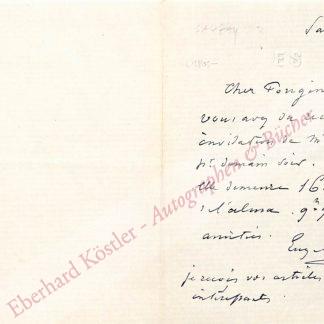 Sa
SAUZAY
Cher Fongin
vous avez du re
invitation de M
demain soir.
Elle demeure 16
l'alma. 9
amitiés.
Eug
je reçois vos articles
intéressants.
Eberhard Köstler - Autographen & Bücher